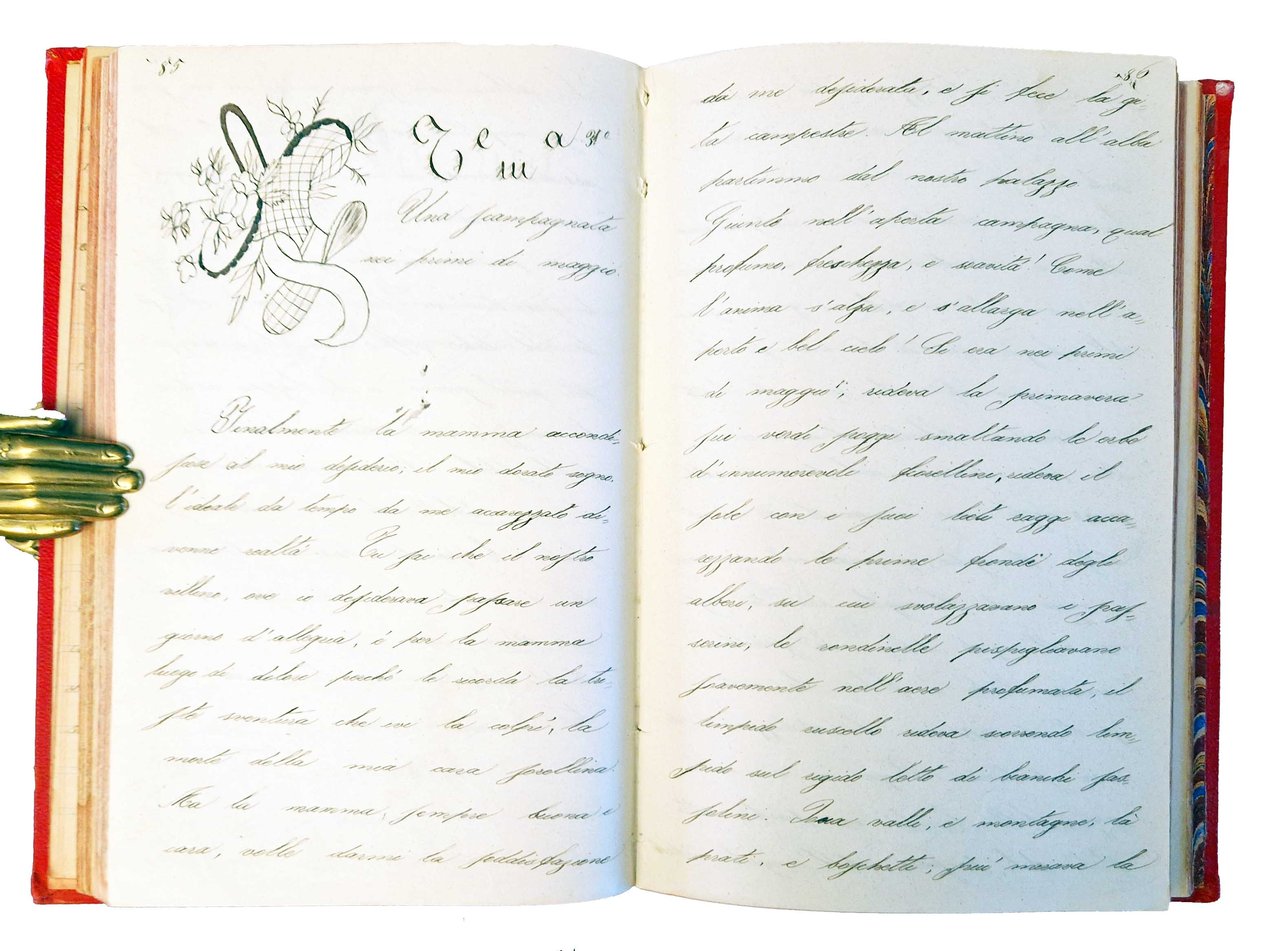 85
Tema
Una scampagnata
nei primi di maggio.
Finalmente la mamma accondi-
scese al mio desiderio; il mio dorato sogno,
l'ideale da tempo da me accarezzato di-
venne realtà. Tu sai che il nostro
villino, ove io desiderava passare un
giorno d'allegria, è per la mamma
luogo di dolori perché le ricorda la tri-
ste sventura che ivi la colpì, la
morte della mia cara sorellina.
Ma la mamma, sempre buona e
cara, volle darmi la soddisfazione
86
da me desiderata, e si fece la gi
ta campestre. Al mattino all'alba
partimmo dal nostro palazzo
Giunti nell'aperta campagna, qual
profumo, freschezza, e soavità! Come
l'anima s'alza, e s'allarga nell'a-
perto e bel cielo! Si era nei primi
di maggio; rideva la primavera
sui verdi poggi smaltando le erbe
d'innumerevoli fiorellini, rideva il
sole con i suoi lieti raggi acca-
rezzando le prime fronde degli
alberi, su cui svolazzavano i pas-
serini, le rondinelle pispigliavano
soavemente nell'aere profumata, il
limpido ruscello rideva scorrendo lim-
pido sul rigido letto di bianchi sas-
solini. Qua valli, e montagne, là
prati, e boschetti; più mirava la